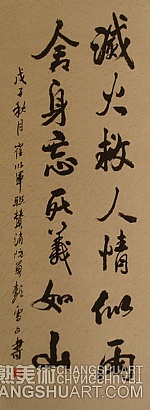 滅火救人情似雨
舍身忘死義如山
戊子秋月崔以軍聯贊消防員彭雪白書
CHANGSHUART
熱美術
CHANGSHUART